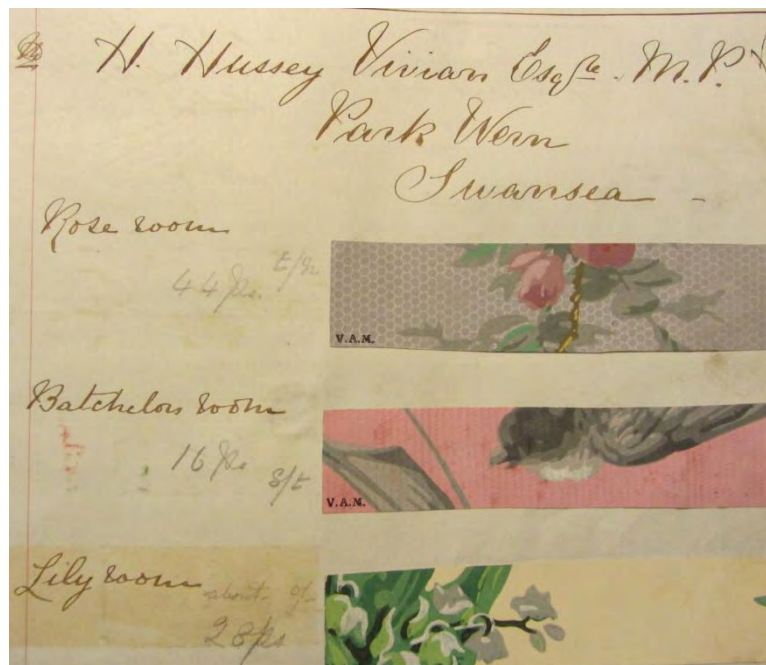 H. Hussey Vivian Esqre. M.P.
Park Wern
Swansea -
Rose room
44 ps.
V.A.M.
Batchelors room
16 ps
V.A.M.
Lily room
about
28ps